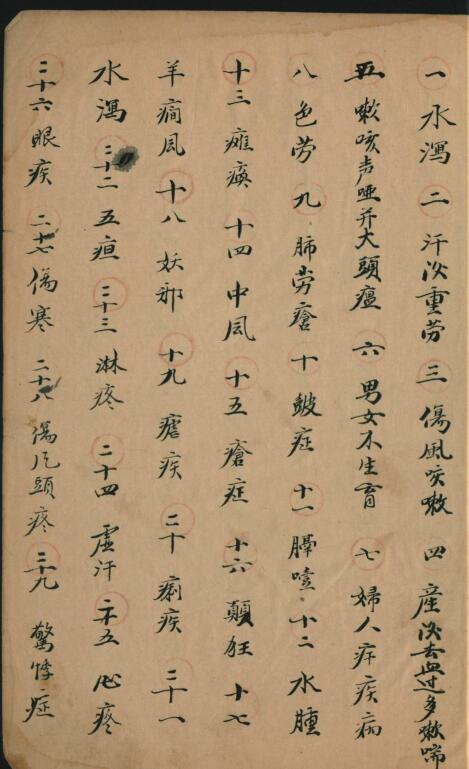 一 水瀉 二 汗次重劳 三 傷風咳嗽 四 產次去血过多嗽喘
五 嗽咳声哑并大頭瘟 六 男女不生育 七 婦人疾病
八 色劳 九 肺劳瘡 十 皷症 十一 膈噎 十二 水腫
十三 瘫瘓 十四 中风 十五 瘡症 十六 顛狂 十七
羊癇风 十八 妖邪 十九 瘧疾 二十 痢疾 二十一
水瀉 二十二 五疸 二十三 淋疼 二十四 虚汗 二十五 心疼
二十六 眼疾 二十七 傷寒 二十八 傷风頭疼 二十九 驚悸症